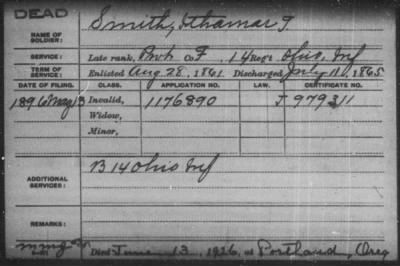 DEAD
NAME OF SOLDIER: Smith, Ithamar T.
SERVICE: Late rank, Pvt. Co. F, 14 Reg't Ohio Inf
TERM OF SERVICE: Enlisted Aug 28, 1861, Discharged July 11, 1865
DATE OF FILING. CLASS. APPLICATION NO. LAW. CERTIFICATE NO.
1896 May 13 Invalid, 1176890 J 979311
Widow,
Minor,
ADDITIONAL SERVICES: B 14 Ohio Inf
REMARKS:
Died June 13, 1926, at Portland, Oreg